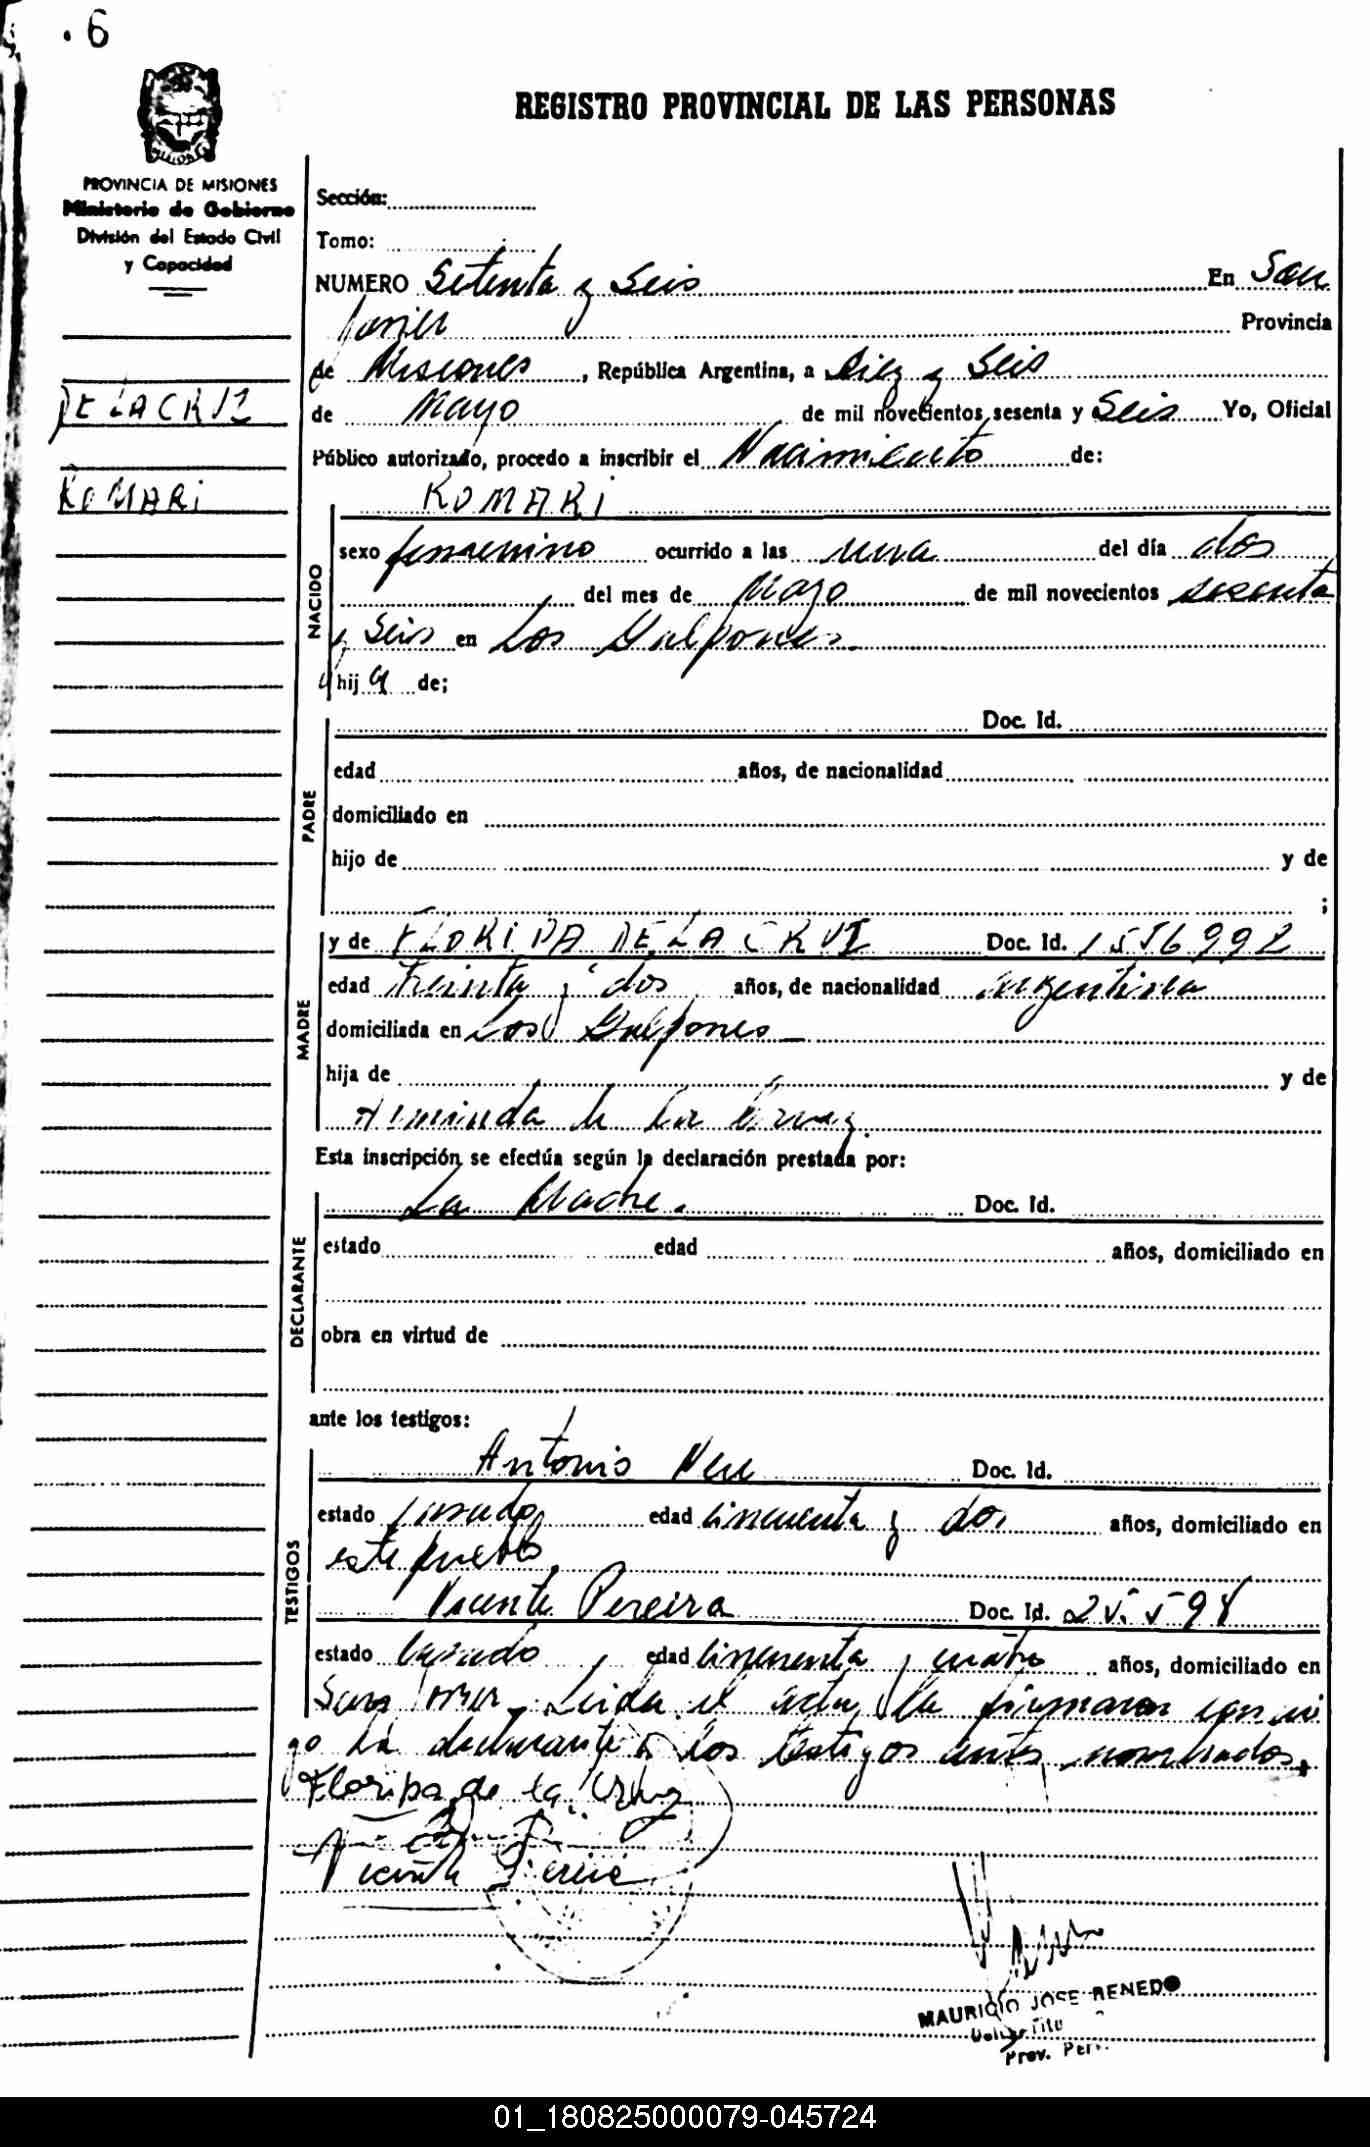 . 6
REGISTRO PROVINCIAL DE LAS PERSONAS
PROVINCIA DE MISIONES
Ministerio de Gobierno
División del Estado Civil
y Capacidad
DE LA CRUZ
ROMARI
Sección:
Tomo:
NUMERO Setenta y Seis En San
Javier Provincia
de Misiones, República Argentina, a Diez y Seis
de Mayo de mil novecientos sesenta y Seis Yo, Oficial
Público autorizado, procedo a inscribir el Nacimiento de:
NACIDO
ROMARI
sexo femenino ocurrido a las una del día dos
del mes de Mayo de mil novecientos sesenta
y Seis en Los Galpones.
hij a de;
PADRE
Doc. Id.
edad años, de nacionalidad
domiciliado en
hijo de y de
;
MADRE
y de FLORIPA DE LA CRUZ Doc. Id. 1556992
edad treinta y dos años, de nacionalidad argentina
domiciliada en Los Galpones
hija de y de
Arminda de la Cruz.
Esta inscripción se efectúa según la declaración prestada por:
DECLARANTE
La Madre. Doc. Id.
estado edad años, domiciliado en
obra en virtud de
ante los testigos:
TESTIGOS
Antonio Doc. Id.
estado casado edad cincuenta y dos años, domiciliado en
este pueblo
Vicente Pereira Doc. Id.
estado casado, edad cincuenta y cuatro años, domiciliado en
San Javier. Leida el acta, la firmaron conmi
go la declarante y los testigos antes nombrados.
Floripa de la Cruz
Vicente
MAURICIO JOSE BENEDO
Prov.
01_180825000079-045724